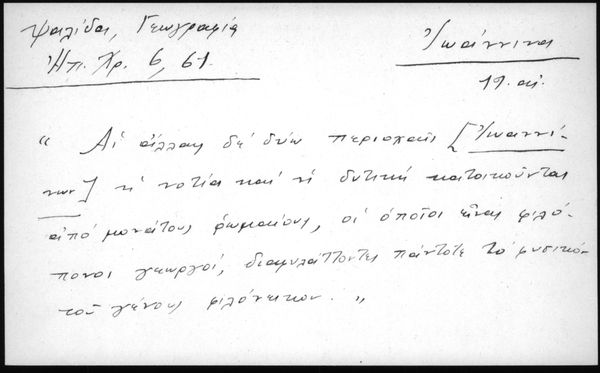 Ψαλίδα, Γεωγραφία
Ἠπ. Χρ. 6, 61.
Ἰωάννινα
19. αἰ.
“ Αἱ ἄλλαι δὲ δύω περιοχαὶς [Ἰωαννί-
νων] ἡ νοτία καὶ ἡ δυτικὴ κατοικοῦνται
ἀπὸ μονάτους ρωμαίους, οἱ ὁποῖοι εἶναι φιλό-
πονοι γεωργοί, διαφυλάττοντες πάντοτε τὸ φυσικὸν
τοῦ γένους φιλόνεικον. „